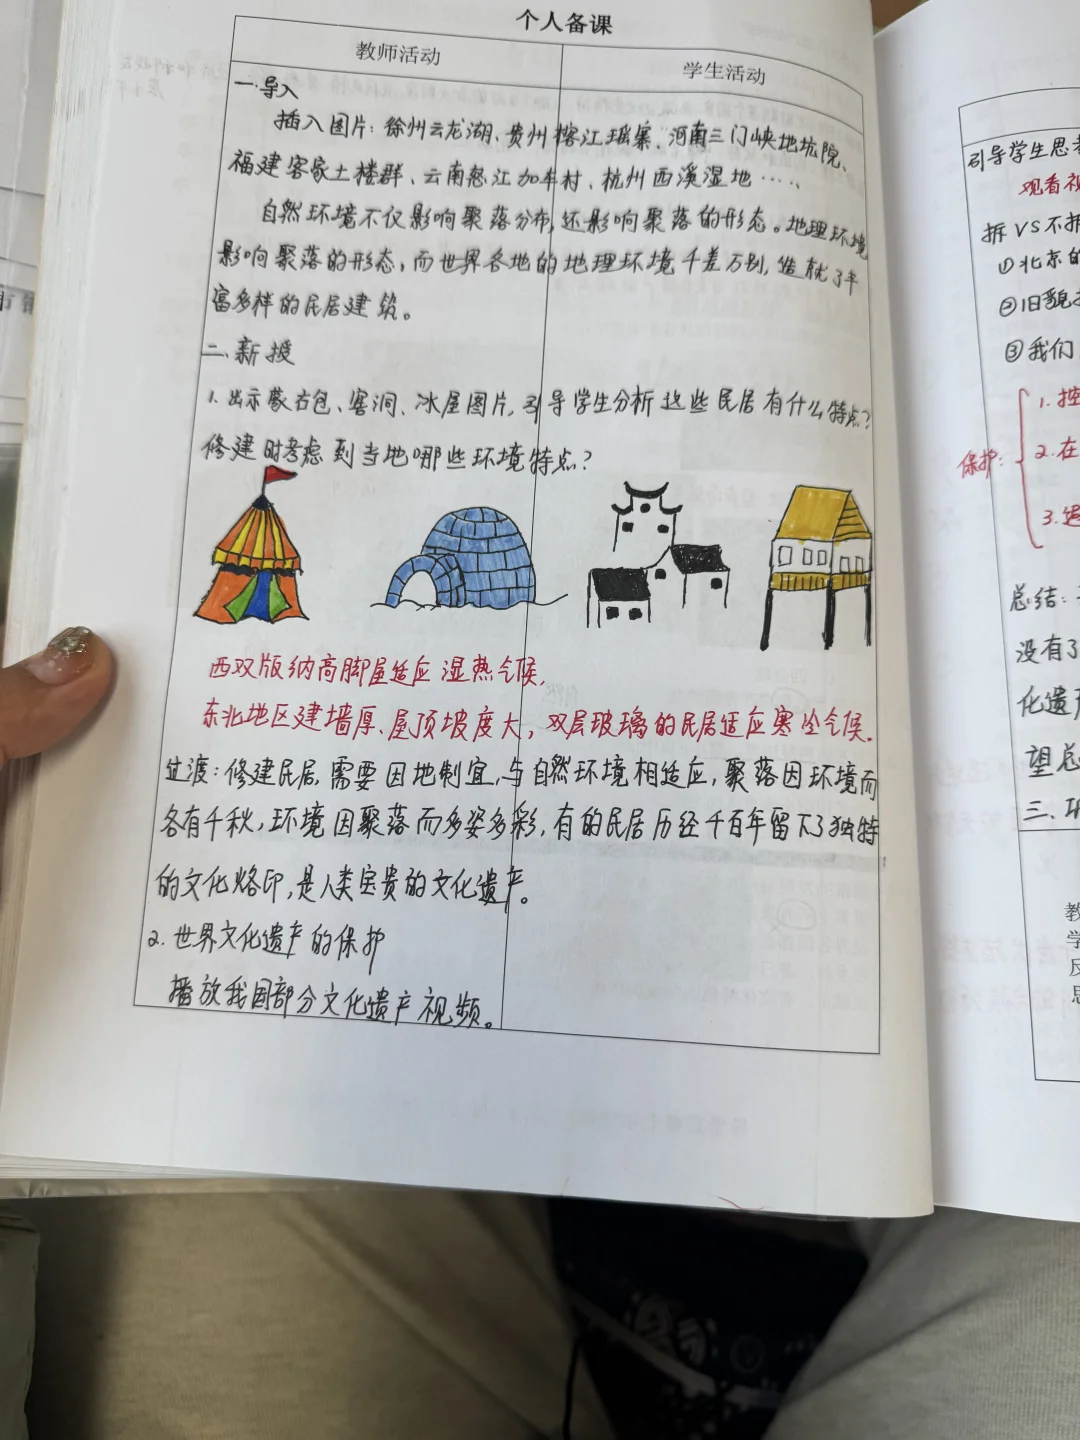 个人备课
教师活动
学生活动
一.导入
插入图片：徐州云龙湖、贵州榕江瑶寨、河南三门峡地坑院、
福建客家土楼群、云南怒江加车村、杭州西溪湿地……
自然环境不仅影响聚落分布,还影响聚落的形态。地理环境
影响聚落的形态,而世界各地的地理环境千差万别,造就了丰
富多样的民居建筑。
二.新授
1.出示蒙古包、窑洞、冰屋图片,引导学生分析这些民居有什么特点?
修建时考虑到当地哪些环境特点?
西双版纳高脚屋适应湿热气候,
东北地区建墙厚、屋顶坡度大,双层玻璃的民居适应寒冷气候.
过渡:修建民居,需要因地制宜,与自然环境相适应,聚落因环境而
各有千秋,环境因聚落而多姿多彩,有的民居历经千百年留下了独特
的文化烙印,是人类宝贵的文化遗产。
2.世界文化遗产的保护
播放我国部分文化遗产视频。
引导学生思考
观看视
拆VS不拆
①北京的
②旧貌
③我们
保护:
1.控
2.在
3.
总结:
没有了
化遗产
望总
三.巩
教
学
反
思